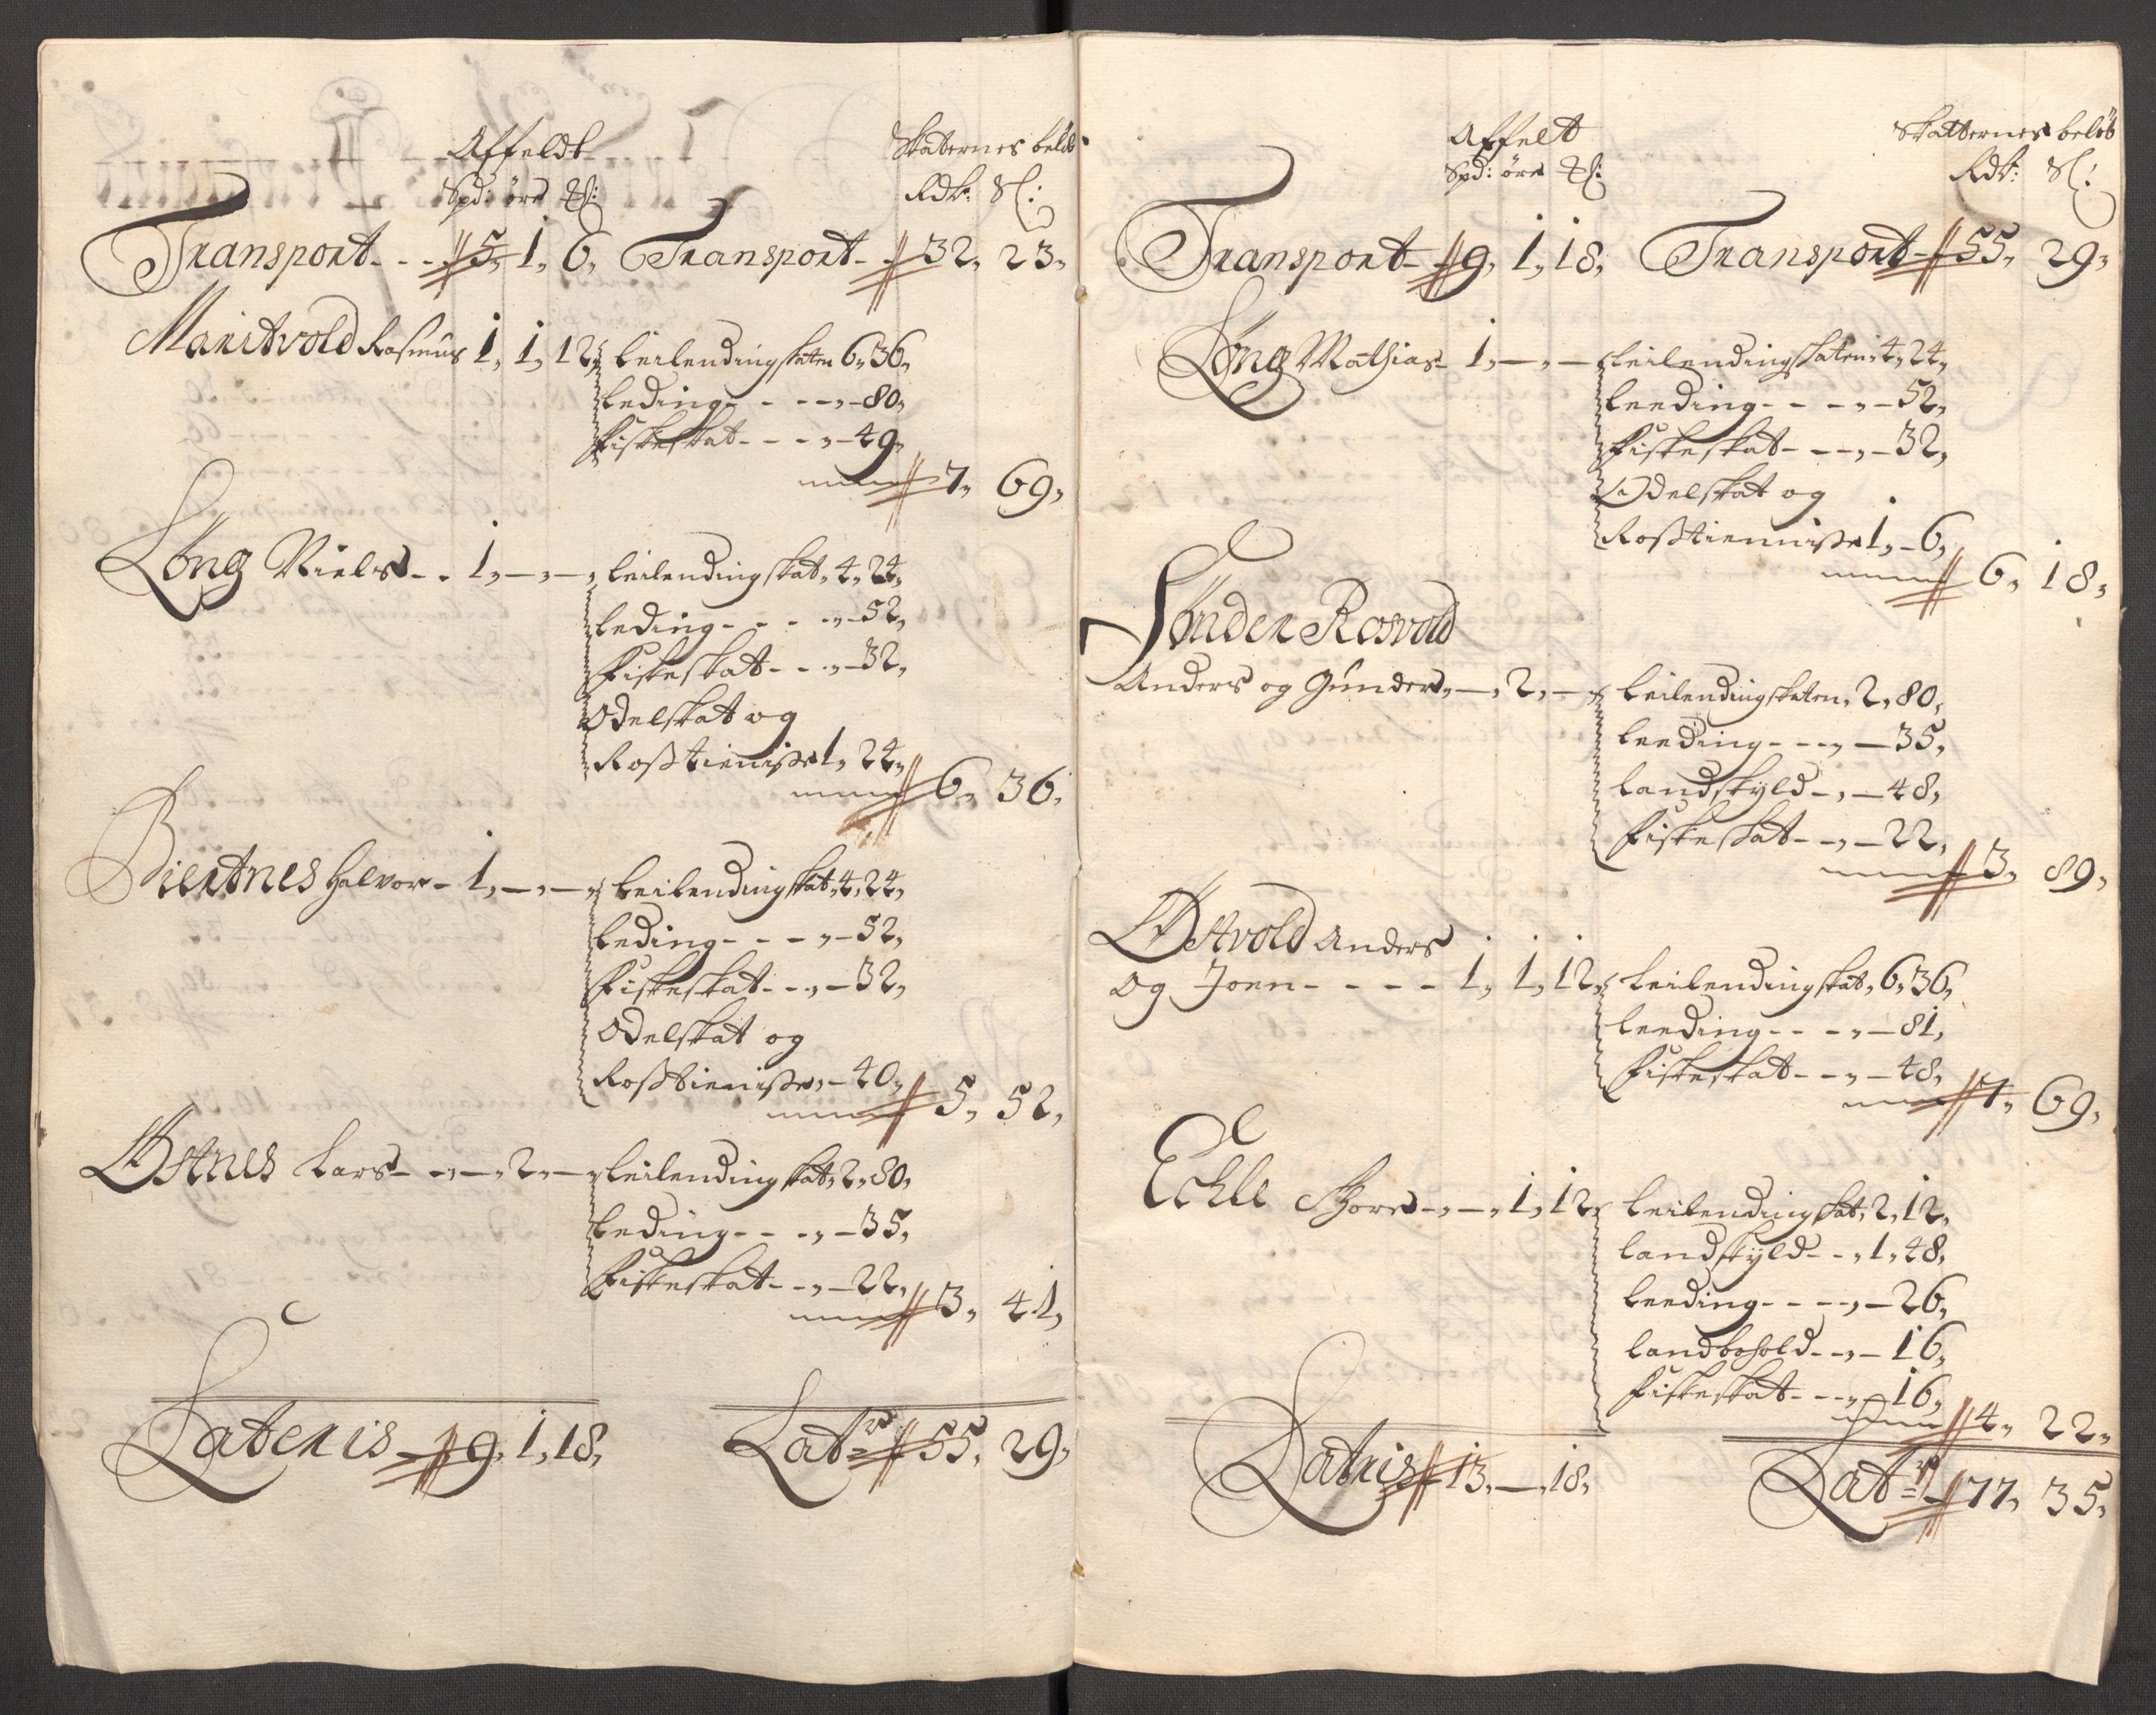 Affeldt Skaternes beløb
Spd: öre ##: Rdr: ß:
Transport - - - 5, 1, 6, Transport - - 32, 23,
Maritvold Rasmus 1, 1, 12, Leilendingskaten 6, 36,
Leding - - - - - 80,
Fiskeskat - - - , - 49,
7, 69,
Löng Niels - - 1, -, -, Leilendingskat, 4, 24,
Leding - - - - , - 52,
Fiskeskat - - , - 32,
Odelskat og
Rosstienisse 1, 24,
6, 36,
Biertnes Halvor - 1, -, - Leilendingskat, 4, 24,
Leding - - - , - 52,
Fiskeskat - - , - 32,
Odelskat og
Rosstienisse, - 40,
5, 52,
Østnes Lars - -, -, 2, - Leilendingskat, 2, 80,
Leding - - - , - 35,
Fiskeskat - - , - 22,
3, 41,
Lateris - 9, 1, 18, Latr 55, 29,
Affelt Skatternes beløb
Spd: öre Rdr: ß:
Transport - 9, 1, 18, Transport - 55, 29,
Löng Mathias - 1, -, - Leilendingskaten, 4, 24,
Leeding - - - , - 52,
Fiskeskat - - - , - 32,
Odelskat og
Rosstiennisse 1, - 6,
6, 18,
Sönder Rosvold
Anders og Gunder, -, 2, - Leilendingskaten, 2, 80,
Leeding - - - , - 35,
Landskyld - , - 48,
Fiskeskat - - , - 22,
3, 89,
Østvold Anders
og Joen - - - - 1, 1, 12, Leilendingskat, 6, 36,
Leeding - - - , - 81,
Fiskeskat - - , - 48,
7, 69,
Echle Tore - , -, 1, 12, Leilendingskat, 2, 12,
Landskyld - - , 1, 48,
Leeding - - - - , - 26,
Landbohold - - , - 16,
Fiskeskat - - - , - 16,
4, 22,
Latris 13, -, 18, Latr 77, 35,